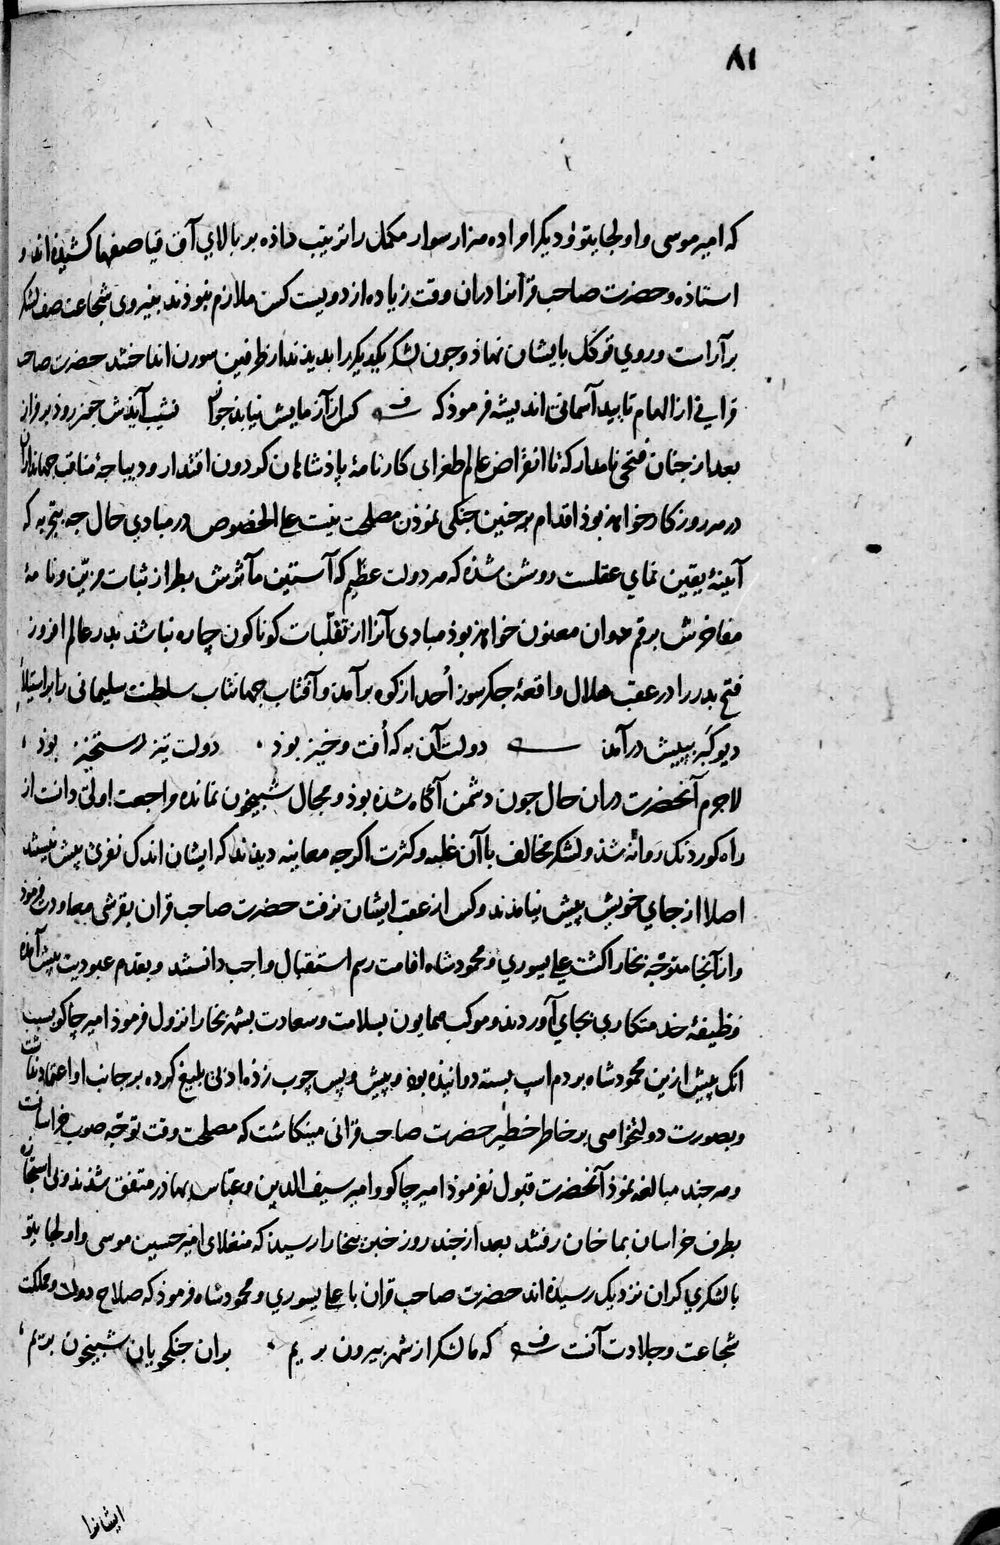 ٨١
که امیر موسی و اولجایتو و دیگر امرا ده هزار سوار مکمل را ترتیب داده بر بالای آق قیا صفها کشیده اند و
استاده و حضرت صاحب قرانرا دران وقت زیاده از دویست کس ملازم نبودند بنیروی شجاعت صف لشکر
بر آراست و روی توکل بایشان نهاد و چون لشکر یکدیگر را بدیدند از طرفین سورن انداختند حضرت صاحب
قرانی از الهام تایید آسمانی اندیشه فرموذ که
بعد از چنان فتحی نامدار که تا انقراض عالم طغرای کارنامهٔ پاذشاهان کردون اقتدار و دیباجهٔ مناقب جهانداران
در هر روزکار خواهد بوذ اقدام بر چنین جنکی نموذن مصلحت نیست علی الخصوص در مبادی حال چه بتجربه که
آینهٔ یقین نمای عقلست روشن شذه که هر دولت عظیم که آستین مآثرش بطراز ثبات مزیّن و نامهٔ
مفاخرش برقم عنوان معنون خواهد بوذ مبادی آنرا از تقلّبات کوناکون چاره نباشذ بدر عالم افروز
فتح بدر را در عقب هلال واقعهٔ جکرسوز اُحد از کوه برآمد و آفتاب جهانتاب سلطنت سلیمانی را ابر استیلاء
دیو کبر بپیش درآمد دولت آن به که اُفت و خیز بوذ . دَولت تیز رستخیز بوذ
لاجرم آنحضرت دران حال چون دشمن آکاه شذه بوذ و مجال شبیخون نمانده مراجعت اولی دانست از
راه کوردنک روانه شذ و لشکر مخالف با آن غلبه و کثرت اکرچه معاینه دیدند که ایشان اندک نفری بیش نیستند
اصلا از جای خویش پیش نیامدند و کس از عقب ایشان نرفت حضرت صاحب قران بقرشی معاودت فرموذ
و از آنجا متوجّه بخارا کشت علی یسوری و محمود شاه اقامت رسم استقبال واجب دانستند و بقدم عبودیت پیش آمده
وظیفهٔ خدمتکاری بجای آوردند و موکب همایون بسلامت و سعادت بشهر بخارا نزول فرموذ امیر جاکو بسبب
انک پیش ازین محمود شاه بر دم اسپ بسته دوانیده بوذ و پیش و پس چوب زذه ادبی بلیغ کرده بر جانب او اعتماد نداشت
و بصورت دولتخواهی بر خاطر خطیر حضرت صاحب قرانی مینکاشت که مصلحت وقت توجّه صوب خراسانست
و هر چند مبالغه نموذ آنحضرت قبول نفرموذ امیر جاکو و امیر سیف الدین و عباس بهادر متفق شذند و بی استجازه
بطرف خراسان بماخان رفتند بعد از چند روز خبر ببخارا رسید که منغلای امیر حسین موسی و اولجایتو
با لشکری کران نزدیک رسیده اند حضرت صاحب قران با علی یسوری و محمود شاه فرموذ که صلاح دولت و مملکت
شجاعت و جلادت آنست که ما لشکر از شهر بیرون بریم . بران جنکجویان شبیخون بریم
ایشانرا